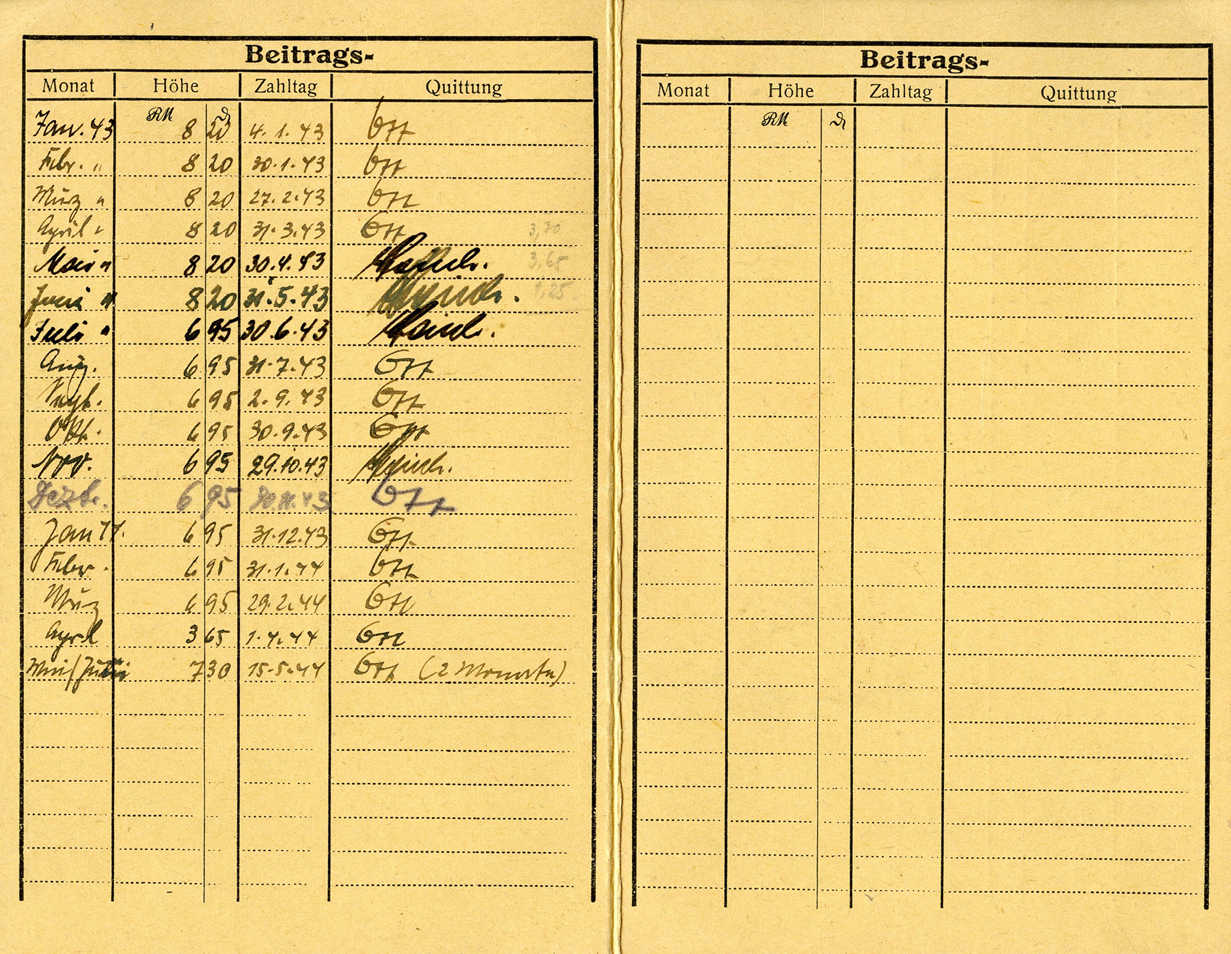 Beitrags-
Monat Höhe Zahltag Quittung
RM
Jan. 43 8 20 4.1.43 Ott
Febr. " 8 20 30.1.43 Ott
März " 8 20 27.2.43 Ott
April " 8 20 31.3.43 Ott 3,30
Mai " 8 20 30.4.43 3,65
Juni " 8 20 31.5.43 1,25
Juli " 6 95 30.6.43
Aug. 6 95 31.7.43 Ott
Sept. 6 95 2.9.43 Ott
Okt. 6 95 30.9.43 Ott
Nov. 6 95 29.10.43
Dezbr. 6 95 30.11.43 Ott
Jan 44. 6 95 31.12.43 Ott
Febr. 6 95 31.1.44 Ott
März 6 95 29.2.44 Ott
April 3 65 1.4.44 Ott
Mai/Juni 7 30 15.5.44 Ott (2 Monate)
Beitrags-
Monat Höhe Zahltag Quittung
RM